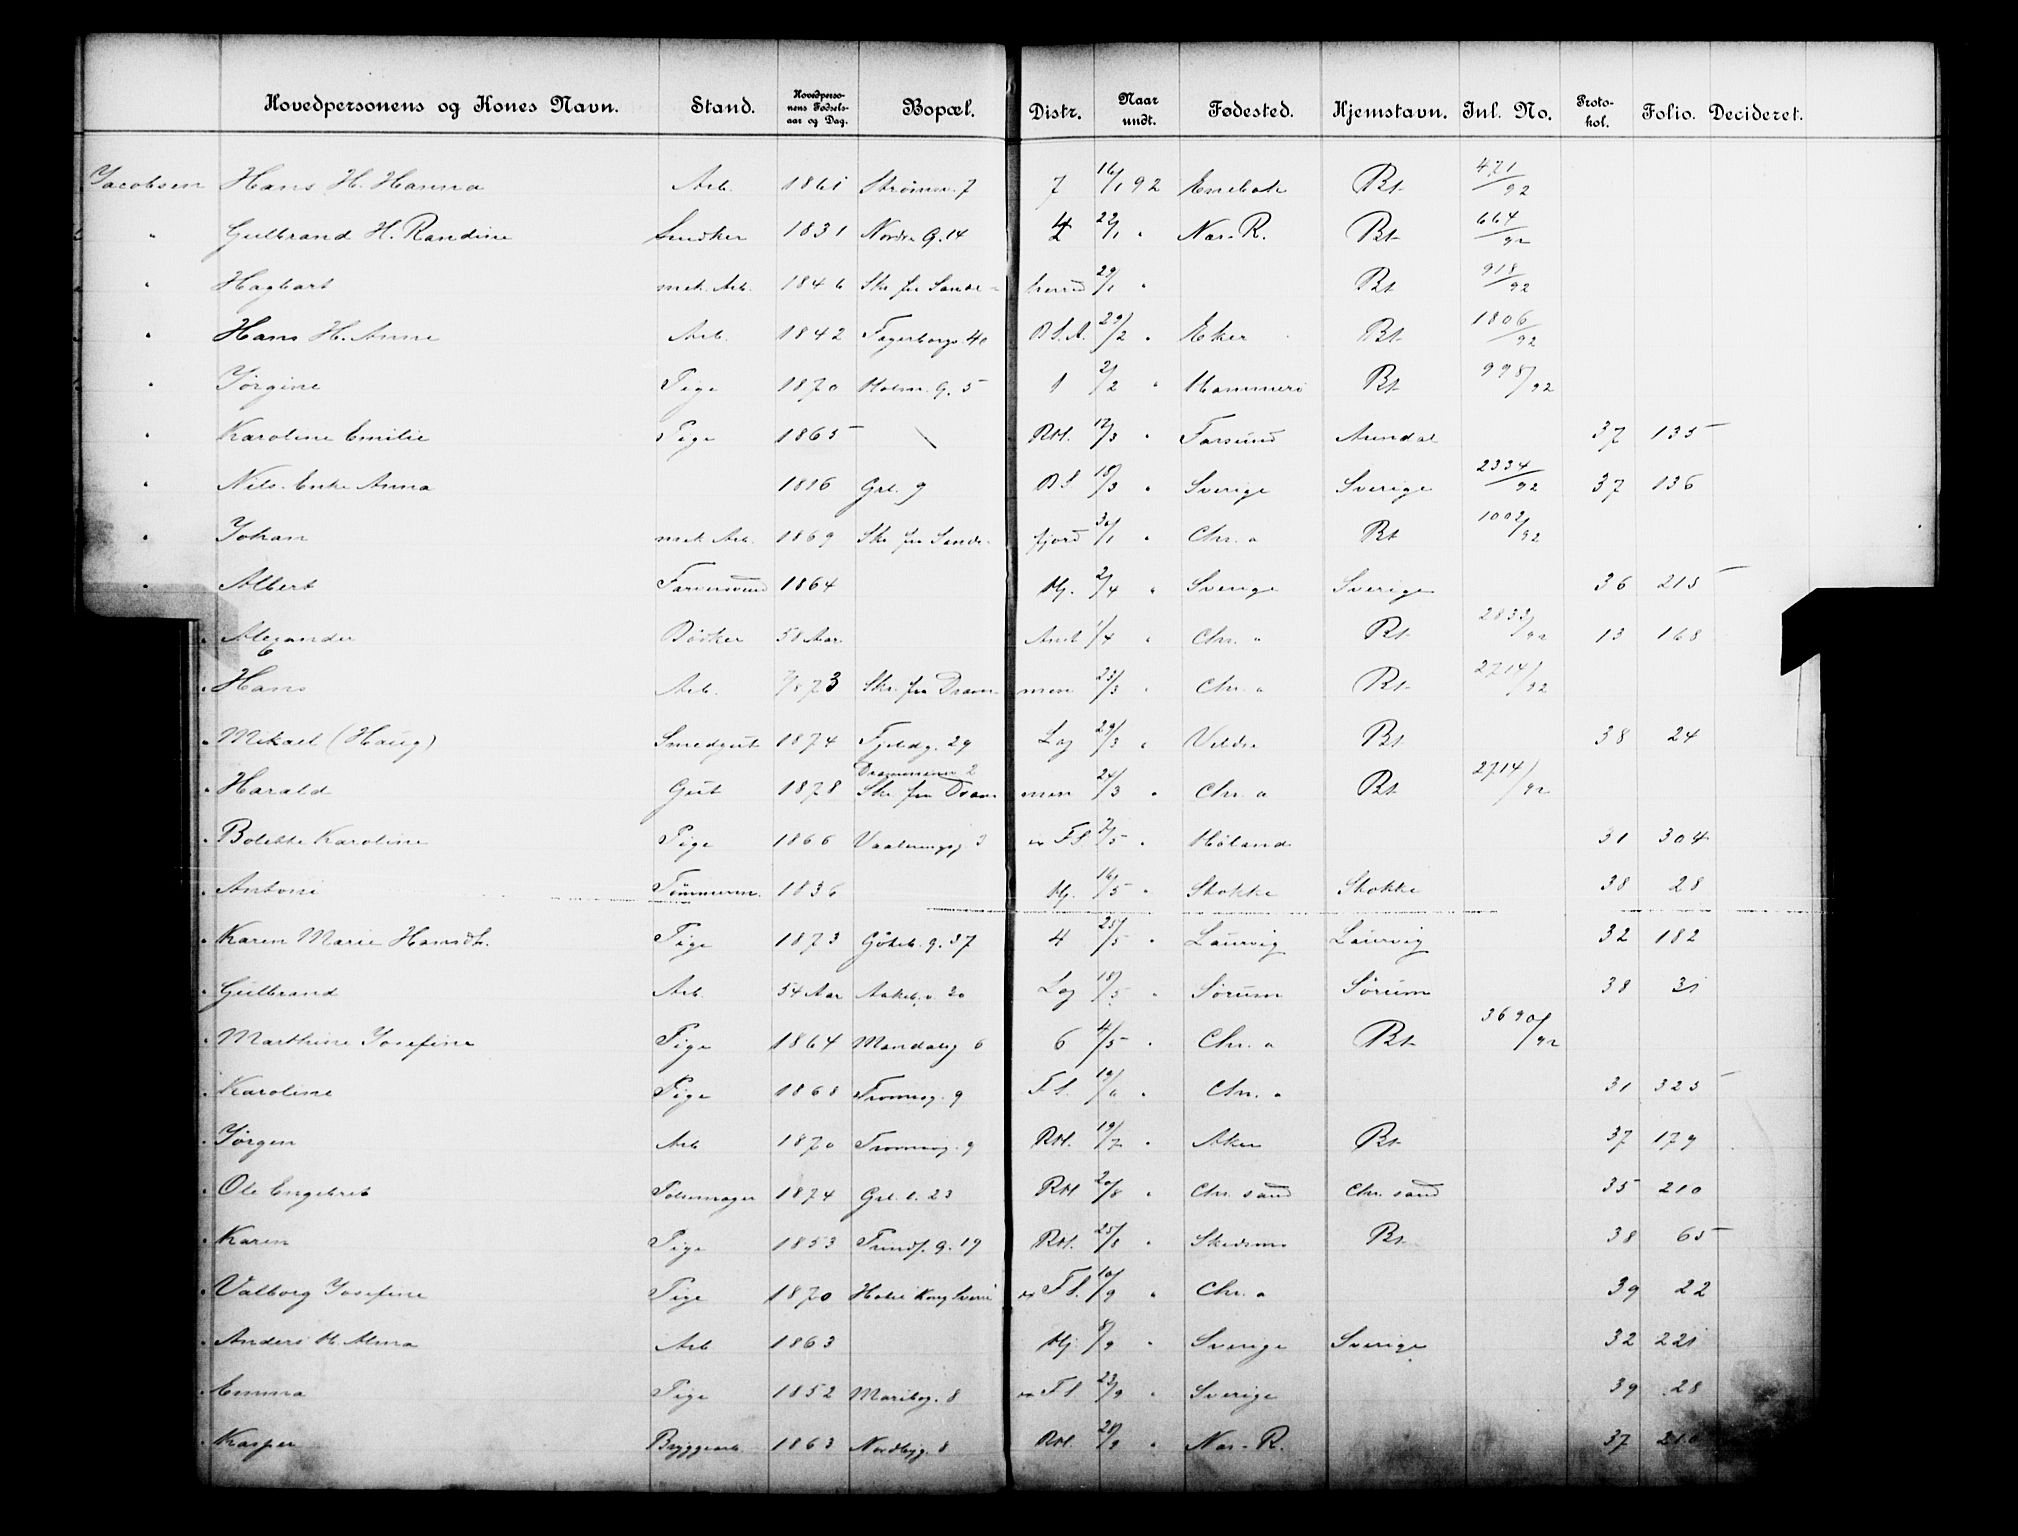 Hovedpersonens og Kones Navn. Stand. Hovedperso-nens Fødsels-aar og Dag. Bopæl. Distr. Naar undt. Fødested. Hjemstavn. Inl. No. Proto-kol. Folio. Decideret.
Jacobsen Hans H. Hanna Arb. 1861 Strømsv. 7 7 16/1 92 Enebak Bt 471/92
" Gulbrand H. Randine Snedker 1831 Nordre G. 14 22/1 " Næs. R. Bt 664/92
" Hagbart mek. Arb. 1846 Skr fra Sande- herred 29/1 " Bt 918/92
" Hans H. Anne Arb. 1842 Fagerborgg 40 29/2 " Eker Bt 1806/92
" Jørgine Pige 1870 Holm. G. 5 1 2/2 " Hammerø Bt 998/92
" Karoline Emilie Pige 1865 RM. 12/3 " Farsund Arendal 37 135
" Nils. Enke Anna 1816 Grl. 9 B S 18/3 " Sverige Sverige 2334/92 37 136
" Johan mek Arb. 1869 Skr fra Sande- fjord 30/1 " Chr. a Bt 1002/92
" Albert Farversvend 1864 Hj. 2/4 " Sverige Sverige 36 215
" Alexander Bødker 50 Aar 1/4 " Chr. a Bt 2833/92 13 168
" Hans Arb. 7/8 73 Skr. fra Dram- men 23/3 " Chr. a Bt 2714/92
" Mikael (Haug) Smedgut 1874 Fjeldg. 29 Lag 29/3 " Veldre Bt 38 24
Drammensv 2
" Harald Gut 1878 Skr fra Dram men 24/3 " Chr. a Bt 2714/92
" Bolette Karoline Pige 1866 Vaalerengg 3 F S 7/5 " Høland 31 304
" Antoni Tømmerm. 1836 Hj. 16/5 " Stokke Stokke 38 28
" Karen Marie Hansdt. Pige 1873 Göteb. g. 37 4 25/5 " Laurvig Laurvig 32 182
" Gulbrand Arb. 54 Aar Akeb. v. 20 Lag 18/5 " Sørum Sørum 38 31
" Marthine Josefine Pige 1864 Mandalsg 6 6 4/5 " Chr. a Bt 3690/92
" Karoline Pige 1868 Tromsøg. 9 F S. Chr. a 31 325
" Jørgen Arb 1870 Tromsøg. 9 RM. 19/7 " Aker Bt 37 179
" Ole Engebret Pølsemager 1874 Grl. l. 23 RM 20/8 " Chr. sand Chr. sand 35 210
" Karen Pige 1853 Trondj. G. 19 RM. 25/8 " Skedsmo Bt 38 65
" Valborg Josefine Pige 1870 Hotel Kong Sverre F S. 10/9 " Chr. a 39 22
" Anders H. Alma Arb 1863 Hj. 8/9 " Sverige Sverige 32 221
" Emma Pige 1852 Maribog. 8 F S 23/9 " Sverige 39 28
" Kasper Bryggearb. 1863 Nordbyg. 8 RM. 28/9 " Næs. R. 37